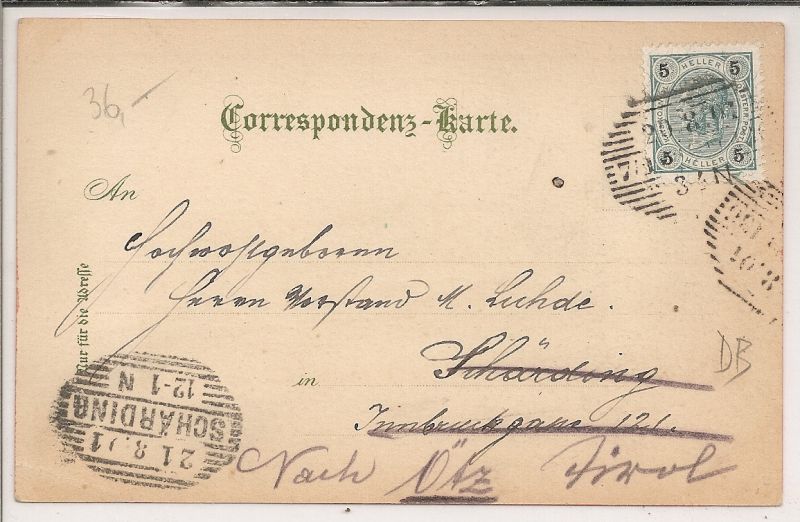 36,-
5 HELLER 5
5 HELLER 5
3-4 N
Correspondenz-Karte.
An
Hochwohlgeboren
Herrn Vorstand M. Luhde.
Nur für die Adresse
in Schärding
Innbruckgasse 121.
Nach Ötz Tirol
DB
SCHÄRDING
21.8.01
12-1 N